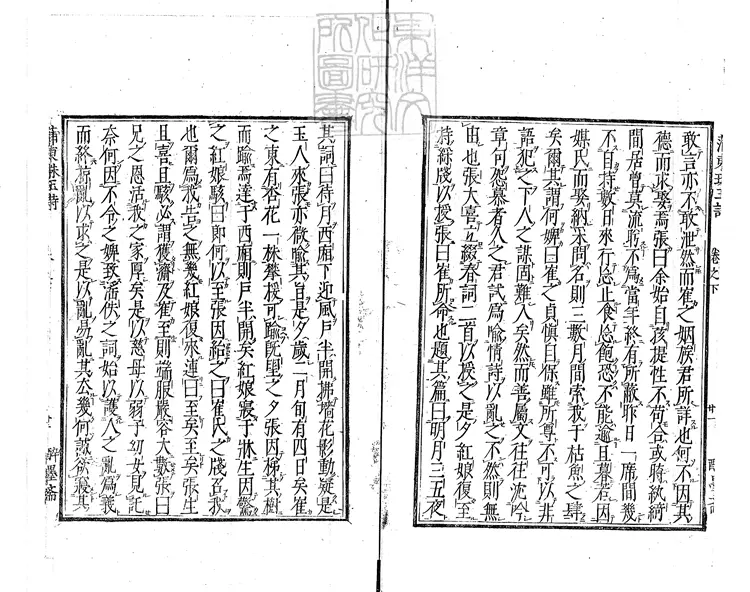 敢言亦不敢泄然而崔之姻族君所詳也何不因其
德而求娶焉張曰余始自孩提性不苟合或時紈綺
間居曾莫流盼不為當年終有所蔽昨日一席間幾
不自持數日來行忘止食忘飽恐不能逾旦暮若因
媒氏而娶納采問名則三數月間索我于枯魚之肆
矣爾其謂何婢曰崔之貞慎自保雖所尊不可以非
語犯之下人之謀固難入矣然而善屬文往往沈吟
章句怨慕者久之君試為喻情詩以亂之不然則無
由也張大喜立綴春詞二首以授之是夕紅娘復至
持綵牋以授張曰崔所命也題其篇曰明月三五夜
卷之下
其詞曰待月西廂下迎風戶半開拂墻花影動疑是
玉人來張亦微喻其旨是夕歲二月旬有四日矣崔
之東有杏花一株攀援可踰既望之夕張因梯其樹
而踰焉達于西廂則戶半開矣紅娘寢于牀生因驚
之紅娘駭曰即何以至張因紿之曰崔氏之牋召我
也爾為我告之無幾紅娘復來連曰至矣至矣張生
且喜且駭必謂獲濟及崔至則端服嚴容大數張曰
兄之恩活我之家厚矣是以慈母以弱子幼女見託
奈何因不令之婢致淫佚之詞始以護人之亂為義
而終掠亂以求之是以亂易亂其去幾何誠欲寢其